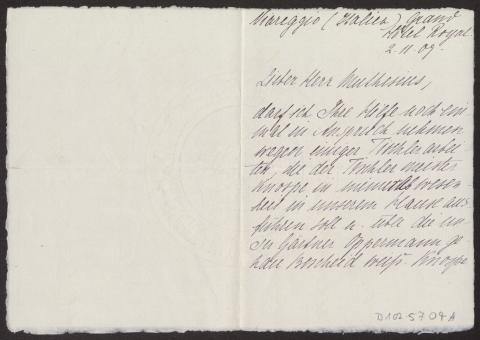 Viareggio (Italien) Grand
Hôtel Royal
2.11.09.
Lieber Herr Muthesius,
darf ich Ihre Hilfe noch ein
mal in Anspruch nehmen
wegen einiger Tischlerarbei
ten, die der Tischlermeister
Knospe in meiner Abwesen-
heit in unserem Hause aus
führen soll u. über die un
ser Gärtner Oppermann ge
nau Bescheid weiß. Knospe
D 102 5704 A